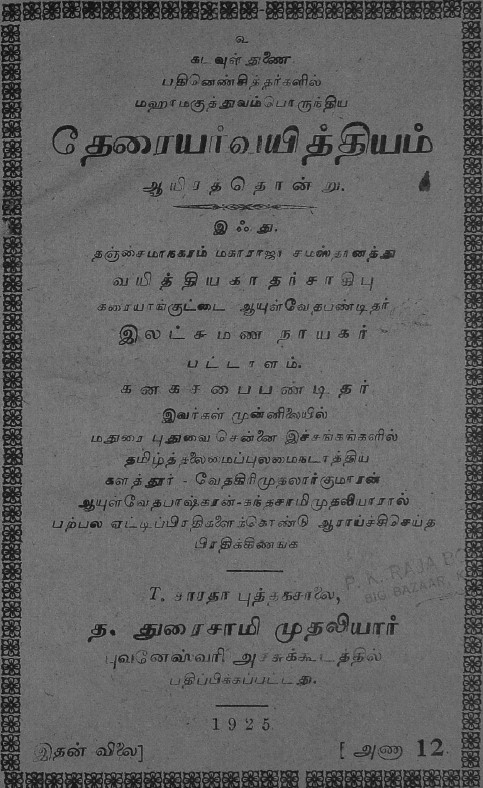 உ
கடவுள் துணை
பதினெண்சித்தர்களில்
மஹாமகுத்துவம்பொருந்திய
தேரையர்வயித்தியம்
ஆயிரத்தொன்று.
இஃது.
தஞ்சைமாநகரம் மகாராஜா சமஸ்தானத்து
வயித்தியகாதர்சாகிபு
கரையாங்குட்டை ஆயுள்வேதபண்டிதர்
இலட்சுமண நாயகர்
பட்டாளம்.
கனகசபைபண்டிதர்
இவர்கள் முன்னிலையில்
மதுரை புதுவை சென்னை இச்சங்கங்களில்
தமிழ்த்தலைமைப்புலமைநடாத்திய
களத்தூர் - வேதகிரிமுதலார்குமாரன்
ஆயுள்வேதபாஷ்கரன்-கந்தசாமிமுதலியாரால்
பற்பல ஏட்டுப்பிரதிகளைக்கொண்டு ஆராய்ச்சிசெய்த
பிரதிக்கிணங்க
P. K. RAJA
BIG BAZAAR,
T. சாரதா புத்தகசாலை,
த. துரைசாமி முதலியார்
புவனேஸ்வரி அச்சுக்கூடத்தில்
பதிப்பிக்கப்பட்டது.
1925
இதன் விலை] [ அணா 12.